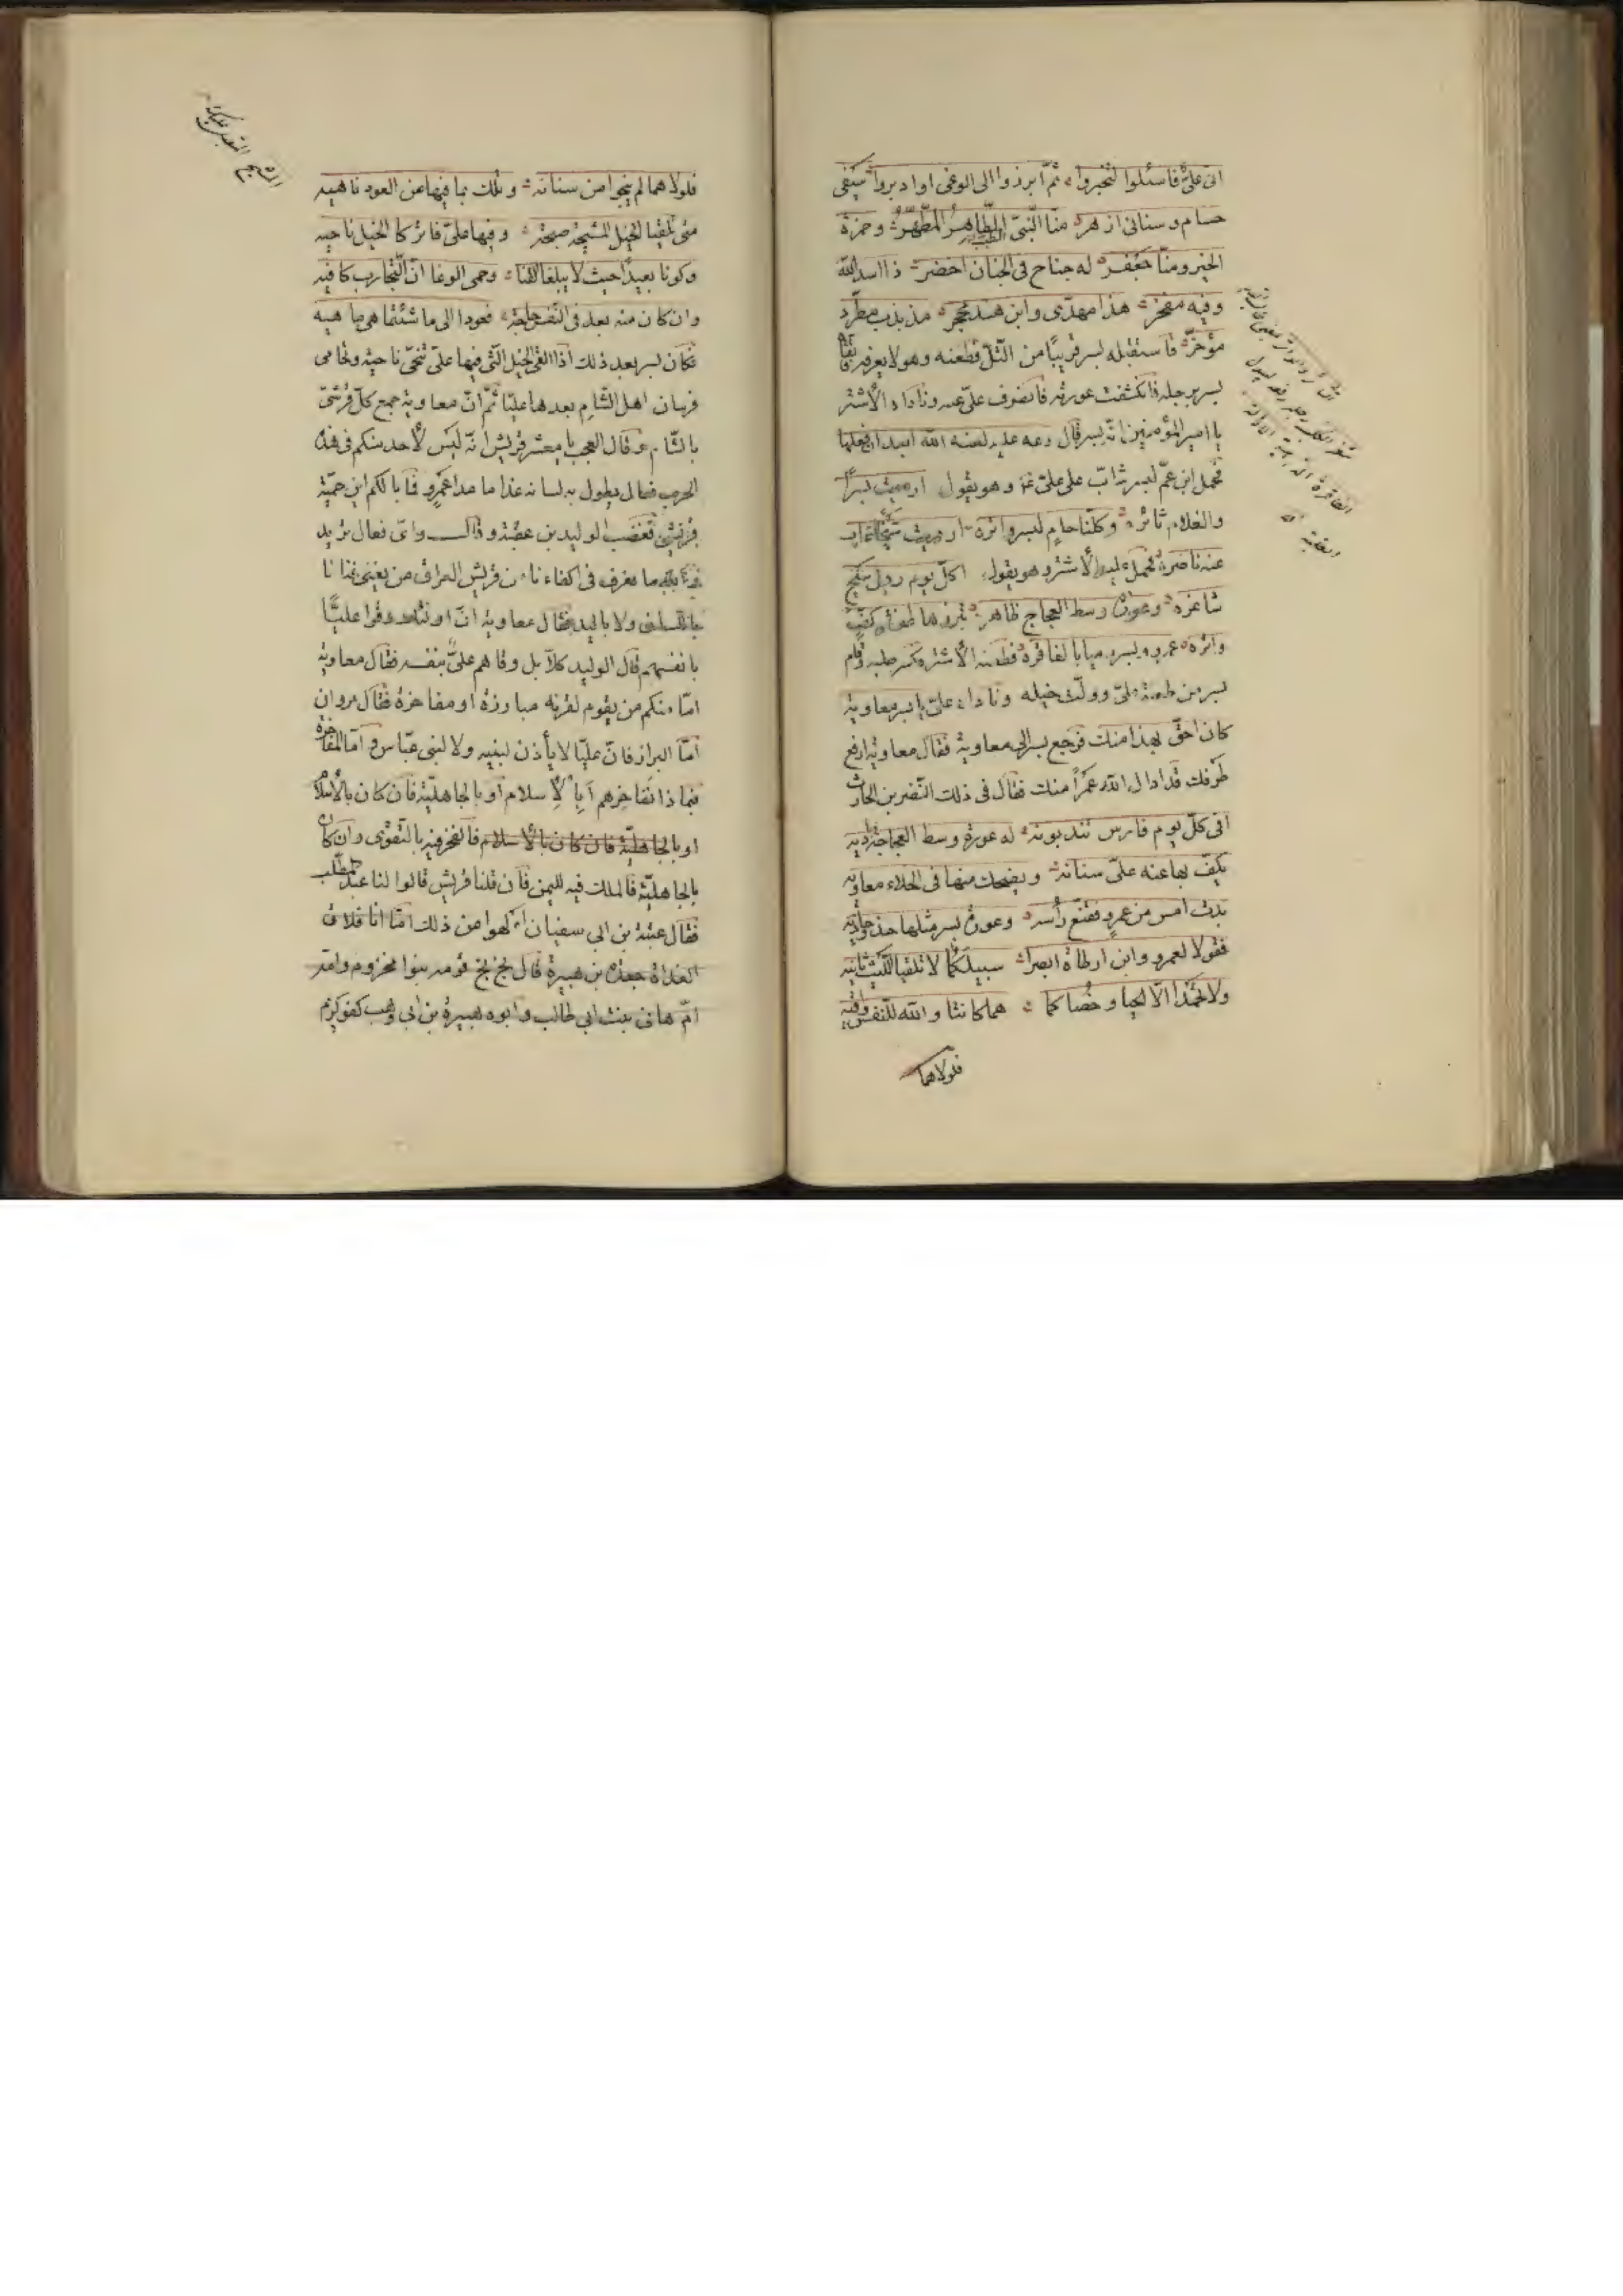 انى علىّ فاسئلوا لتخبروا ثمّ ابرزوا الى الوغى او ادبروا سيفى
حسام و سنانى ازهر منّا النّبىّ الطّاهر المطّهّر و حمزة
الخير و منّا جعفر له جناح فى الجنان اخضر ذا اسد اللّه
وفيه مفخر هذا مهدّى وابن هند محجر مذبذب مطرّد
مؤخّر فاستقبله بسر قريبًا من التّلّ فطعنه وهو لا يعرفه فاتّقاه
بسر برجله فانكشفت عورته فانصرف علىّ عنه وناداه الأشتر
يا امير المؤمنين انّه بسر قال دعه عليه لعنة اللّه ابعد ان فعلها
فحمل ابن عمّ لبسر شابّ على علىّ وهو يقول ارديت بسرًا
والغلام ثائره وكلّنا حام لبسر واتره ارديت شيخا غاب
عنه ناصره فحمل عليه الأشتر وهو يقول اكلّ يوم رجل شيخ
شاغره وعورة وسط العجاج ظاهره تبرزها طعنة كفّ
واتره عمرو وبسر رميا بالفاقره فطعنه الأشتر فكسر صلبه وقام
بسر من طعنة علىّ وولّت خيله وناداه علىّ يا بسر معاوية
كان احقّ بهذا منك فرجع بسر الى معاوية فقال معاوية ارفع
طرفك قد ادال اللّه عمرًا منك فقال فى ذلك النّضر بن الحارث
افى كلّ يوم فارس تندبونه له عورة وسط العجاجة باديه
يكفّ بها عنه علىّ سنانه ويضحك منها فى الخلاء معاويه
بدت امس من عمرو فقنّع رأسه وعورة بسر مثلها حذو حاذيه
فقولا لعمرو وابن ارطاة ابصرا سبيلكما لا تلقيا اللّيث ثانيه
ولا تحمدا الّا الحيا وخصاكما هما كانتا واللّه للنّفس واقيه
فلولاهما
فلولاهما لم ينجوا من سنانه وتلك بما فيها عن العود ناهيه
متى تلقيا الخيل المشيحة صبحة وفيها علىّ فاتركا الخيل ناحيه
وكونا بعيدًا حيث لا يبلغ القنا وحمى الوغا انّ التّجارب كافيه
وان كان منه بعد فى النّفس حاجة فعودا الى ما شئتما هى ما هيه
فكان بسر بعد ذلك اذا لقى الخيل الّتى فيها علىّ تنحّى ناحية وتحامى
فرسان اهل الشّام بعدها عليّا ثمّ انّ معاوية جمع كلّ قرشىّ
بالشّام وقال العجب يا معشر قريش انّه ليس لأحد منكم فى هذه
الحرب فعال يطول به لسانه غدا ما عدا عمرو فما بالكم اين حميّة
قريش فغضب الوليد بن عقبة و قال واىّ فعال تريد
واللّه ما نعرف فى اكفاءنا من قريش العراق من يغنى غنانا
باللسان ولا باليد فقال معاوية انّ اولئك وقوا عليّا
بانفسهم قال الوليد كلّا بل وقاهم علىّ بنفسه فقال معاوية
امّا منكم من يقوم لقرنه مبارزة او مفاخرة فقال مروان
امّا البراز فانّ عليّا لا يأذن لبنيه ولا لبنى عبّاس وامّا المفاخرة
فبماذا نفاخرهم أبالإسلام او بالجاهليّة فان كان بالأسلام
او بالجاهليّة فان كان بالأسلام فالفخر فيه بالتّقوى وان كان
بالجاهليّة فالملك فيه لليمن فان قلنا قريش قالوا لنا عبد المطّلب
فقال عتبة بن ابى سفيان الهوا عن ذلك امّا انا فلاق
الغداة جعدة بن هبيرة قال بخ بخ قومه بنوا مخزوم وامّه
امّ هانى بنت ابى طالب وابوه هبيرة بن ابى وهب كفو كريم